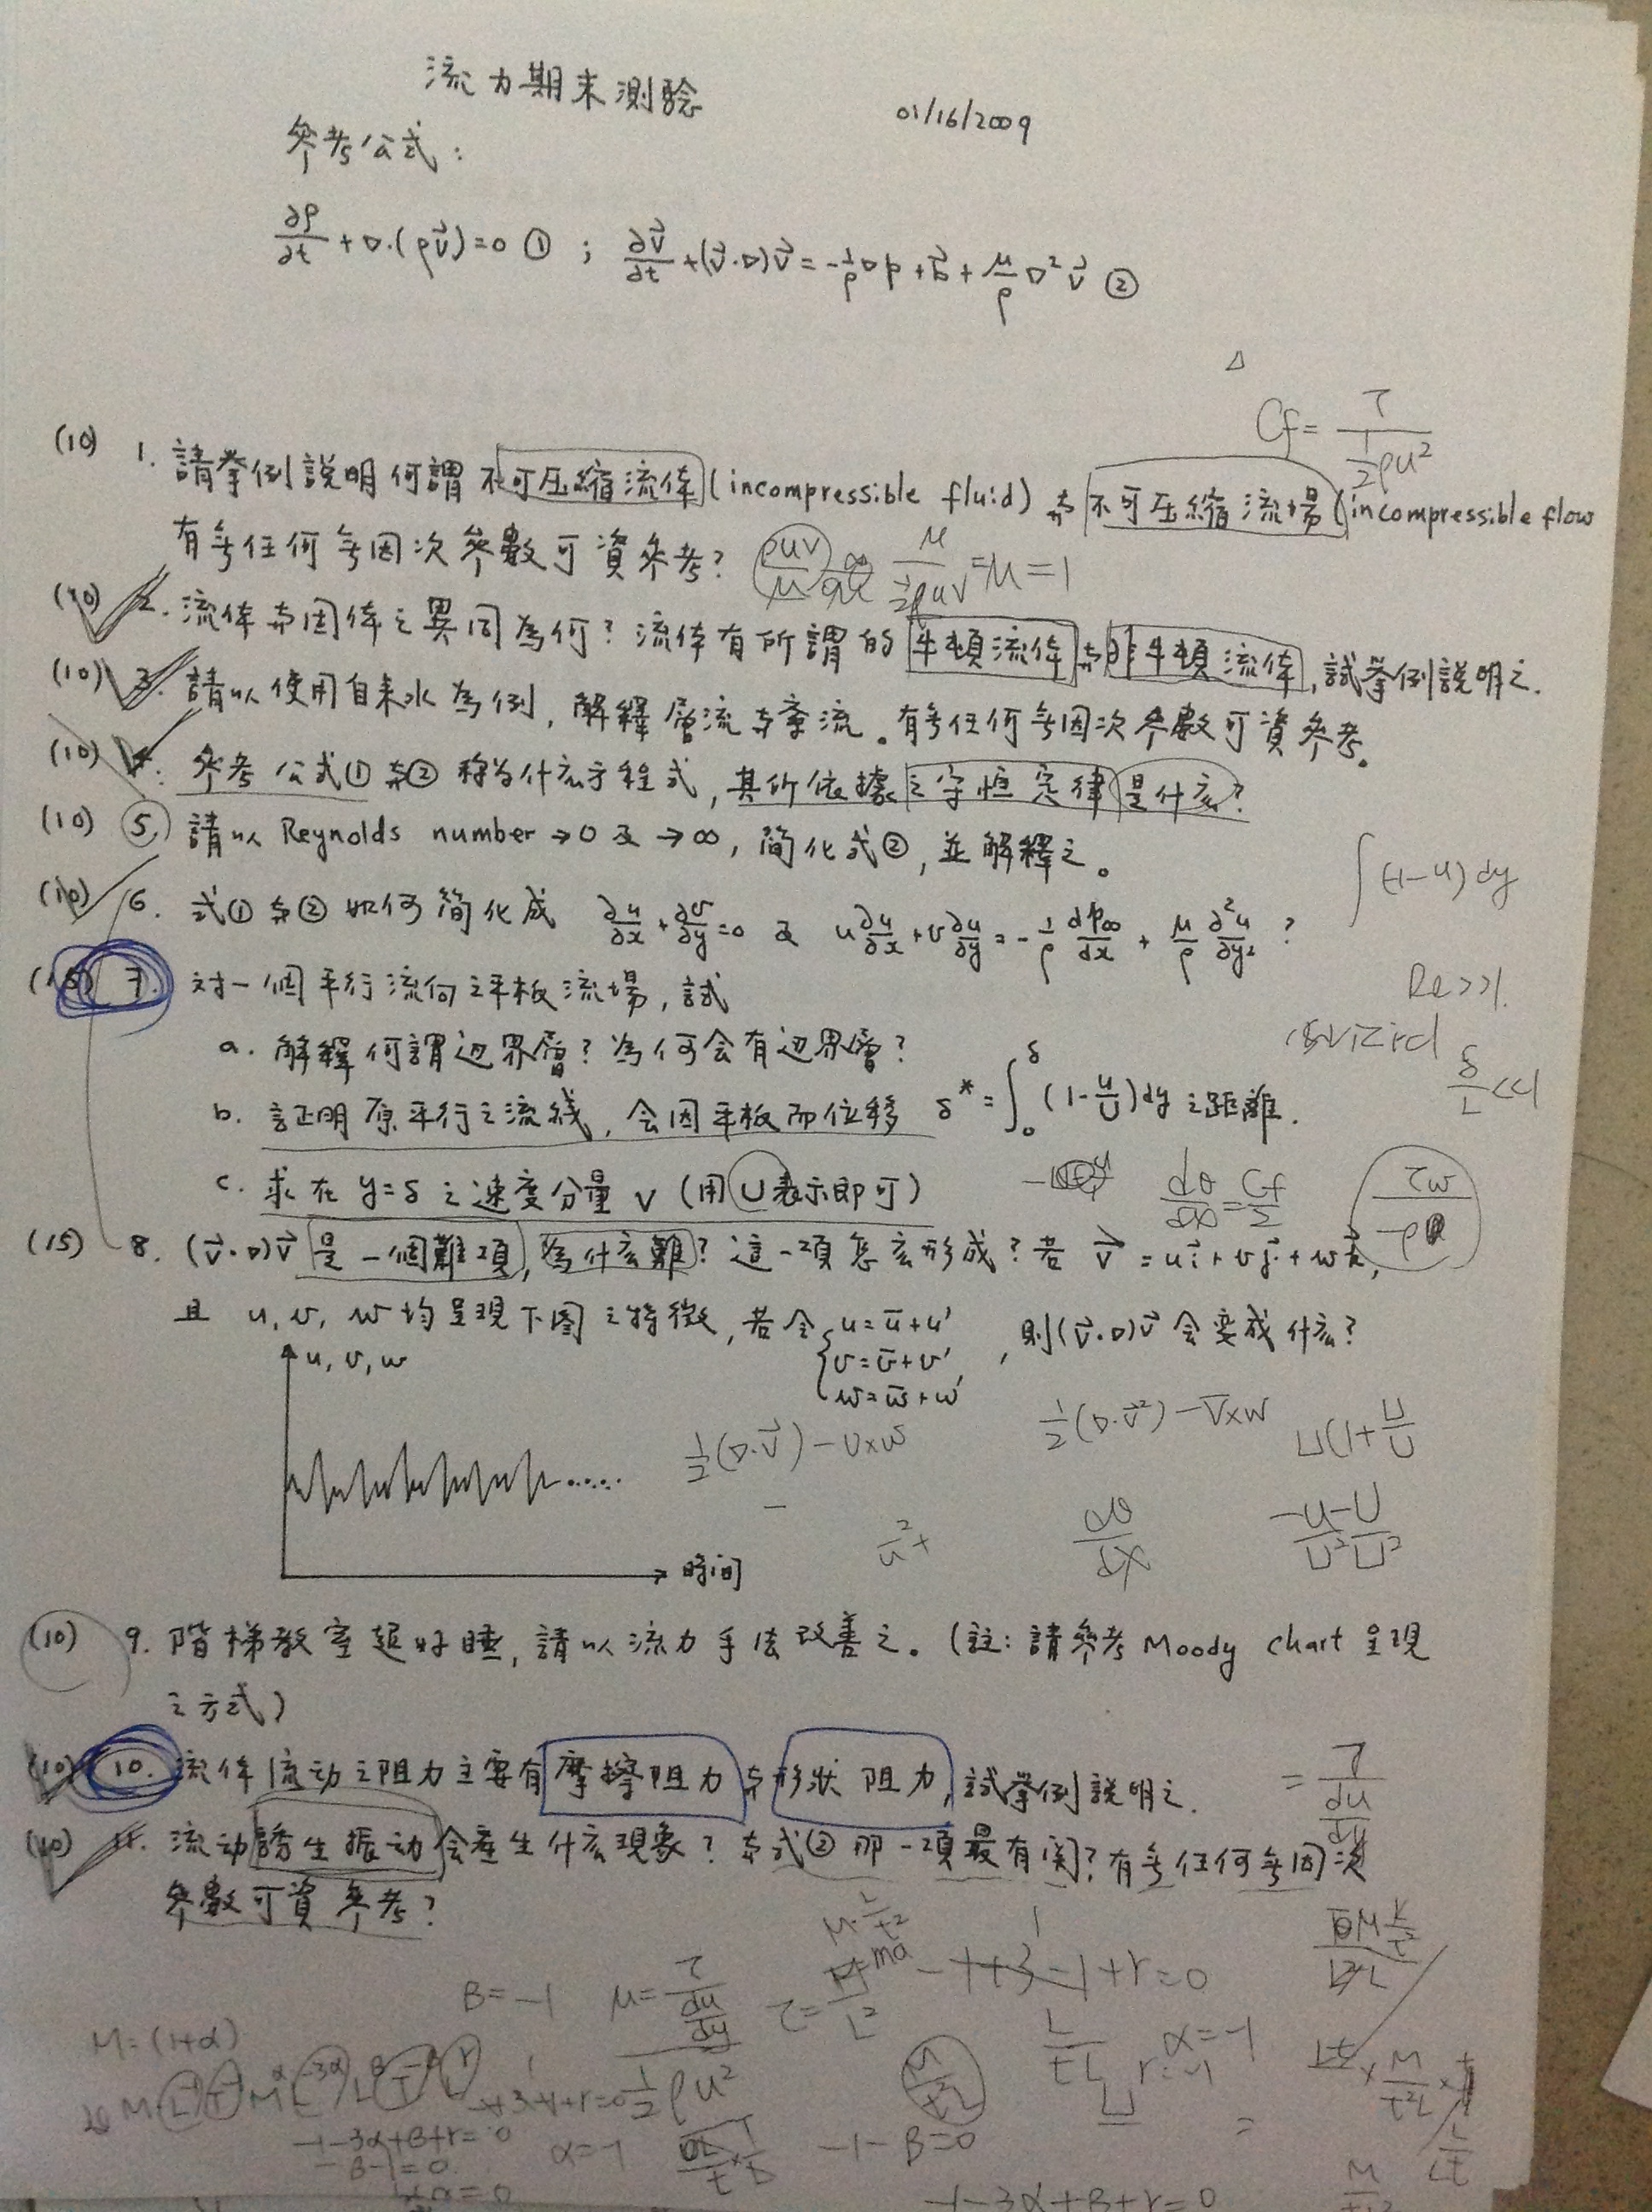 流力期末測驗
01/16/2009
參考公式:
∂ρ/∂t + ∇·(ρv⃗)=0 ① ; ∂v⃗/∂t + (v⃗·∇)v⃗ = -1/ρ ∇p + b⃗ + μ/ρ ∇² v⃗ ②
Cf = τ / ½ρu²
(10) 1. 請舉例說明何謂不可压縮流体(incompressible fluid)与不可压縮流場(incompressible flow
有無任何無因次參數可資參考?
(10) 2. 流体与固体之異同為何? 流体有所謂的牛頓流体与非牛頓流体, 試舉例說明之.
(10) 3. 請以使用自来水為例, 解釋層流与紊流。有無任何無因次參數可資參考。
(10) 4. 參考公式①与②称為什么方程式, 其所依據之守恒定律是什么?
(10) 5. 請以 Reynolds number →0 及 →∞, 簡化式②, 並解釋之。
∫(1-u)dy
(10) 6. 式①与②如何簡化成 ∂u/∂x + ∂v/∂y = 0 及 u ∂u/∂x + v ∂u/∂y = -1/ρ dp∞/dx + μ/ρ ∂²u/∂y² ?
(15) 7. 对一個平行流向之平板流場, 試
Re>>1.
a. 解釋何謂边界層? 為何会有边界層?
δ/L <<1
b. 証明原平行之流线, 会因平板而位移 δ* = ∫₀^δ (1-u/U)dy 之距離.
c. 求在 y=δ 之速度分量 v (用U表示即可)
dθ/dx = Cf/2
(15) 8. (v⃗·∇)v⃗ 是一個難項, 為什么難? 這一項怎么形成? 若 v⃗ = ui⃗ + vj⃗ + wk⃗,
且 u, v, w 均呈現下图之特徵, 若令 { u = ū + u' v = v̄ + v' w = w̄ + w' , 則(v⃗·∇)v⃗ 会变成什么?
u, v, w
½(∇·v⃗) - v×w
½(∇·v⃗²) - v×w
dθ/dx
時间
(10) 9. 階梯教室超好睡, 請以流力手法改善之。(註: 請參考 Moody chart 呈現
之方式)
(10) 10. 流体流动之阻力主要有摩擦阻力与形狀阻力, 試舉例說明之.
= τ / du/dy
(10) 11. 流动誘生振动会產生什么現象? 与式②那一項最有関? 有無任何無因次
參數可資參考?
B=-1
μ = τ / du/dy
M=(1+α)
α=-1
½ρu²
-1-3α+β+r=0
-β-1=0
α=-1
-1-β=0
-1-3α+β+r=0